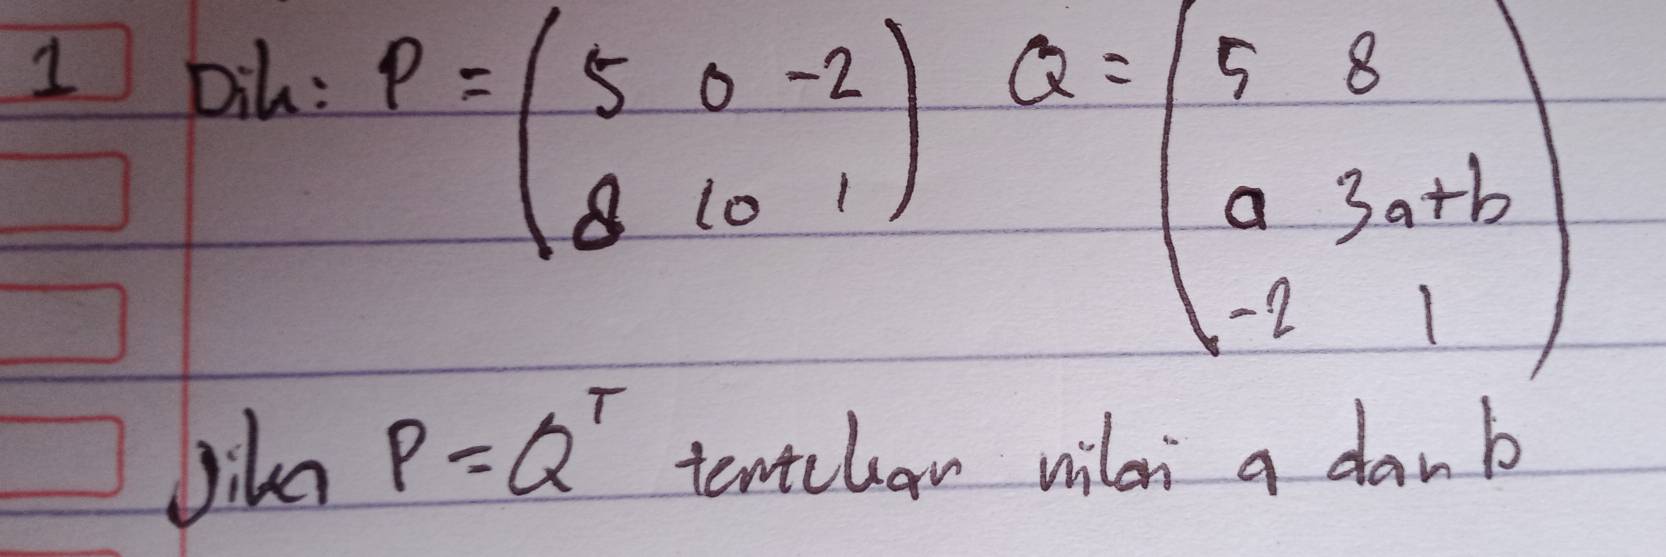 1 Dik: P = (5 0 -2 Q = (5 8
8 10 1) a 3a+b
-2 1)
Jika P = Q^T tentukan nilai a dan b